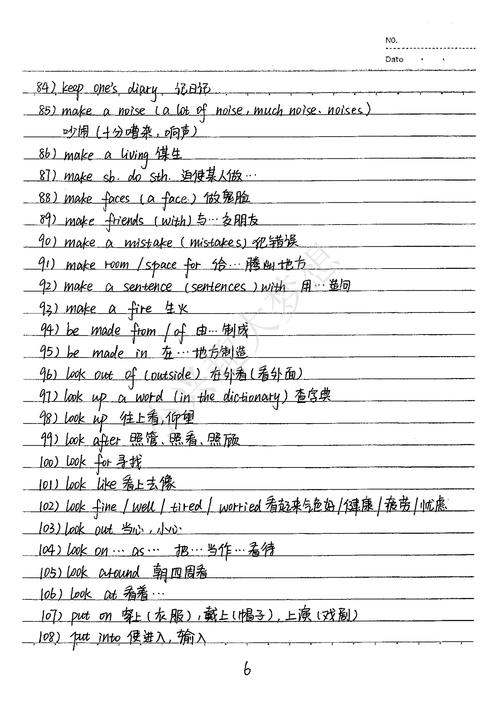 NO.
Date
84) keep one's diary 记日记
85) make a noise (a lot of noise, much noise, noises)
吵闹(十分嘈杂,响声)
86) make a living 谋生
87) make sb. do sth. 迫使某人做…
88) make faces (a face) 做鬼脸
89) make friends (with) 与…交朋友
90) make a mistake (mistakes) 犯错误
91) make room /space for 给…腾出地方
92) make a sentence (sentences) with 用…造句
93) make a fire 生火
94) be made from /of 由…制成
95) be made in 在…地方制造
96) look out of (outside) 在外看(看外面)
97) look up a word (in the dictionary) 查字典
98) look up 往上看,仰望
99) look after 照管、照看、照顾
100) look for 寻找
101) look like 看上去像
102) look fine / well / tired / worried 看起来气色好/健康/疲劳/忧虑
103) look out 当心,小心
104) look on … as … 把…当作…看待
105) look around 朝四周看
106) look at 看着…
107) put on 穿上(衣服),戴上(帽子),上演(戏剧)
108) put into 使进入,输入
6